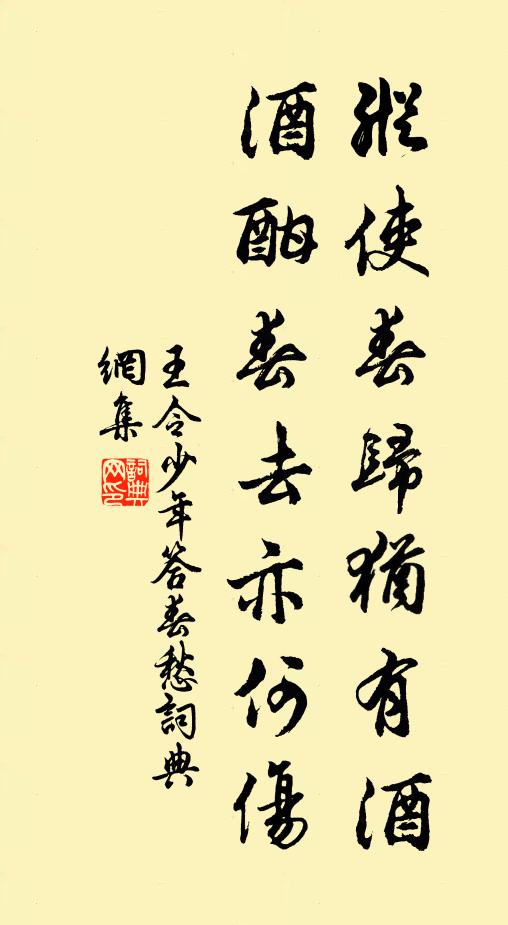 縱使春歸猶有酒
酒酣春去亦何傷
王令少年答春愁詞典
網集
詞典
网印